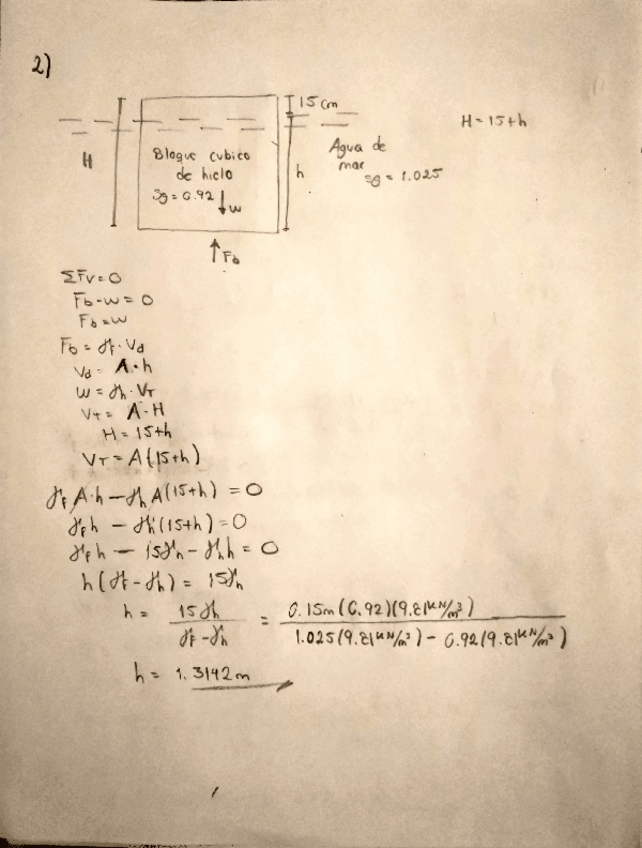 2)
15 cm
H = 15+h
H
Bloque cubico
de hielo
Sg = 0.92
w
h
Agua de
mar
sg = 1.025
Fb
ΣFv = 0
Fb - w = 0
Fb = w
Fb = γf · Vd
Vd = A·h
w = γh · VT
VT = A·H
H = 15+h
VT = A(15+h)
γf A·h - γh A(15+h) = 0
γf h - γh(15+h) = 0
γf h - 15γh - γh h = 0
h(γf - γh) = 15γh
h = 15γh / γf - γh = 0.15m(0.92)(9.81kN/m³) / 1.025(9.81kN/m³) - 0.92(9.81kN/m³)
h = 1.3142m